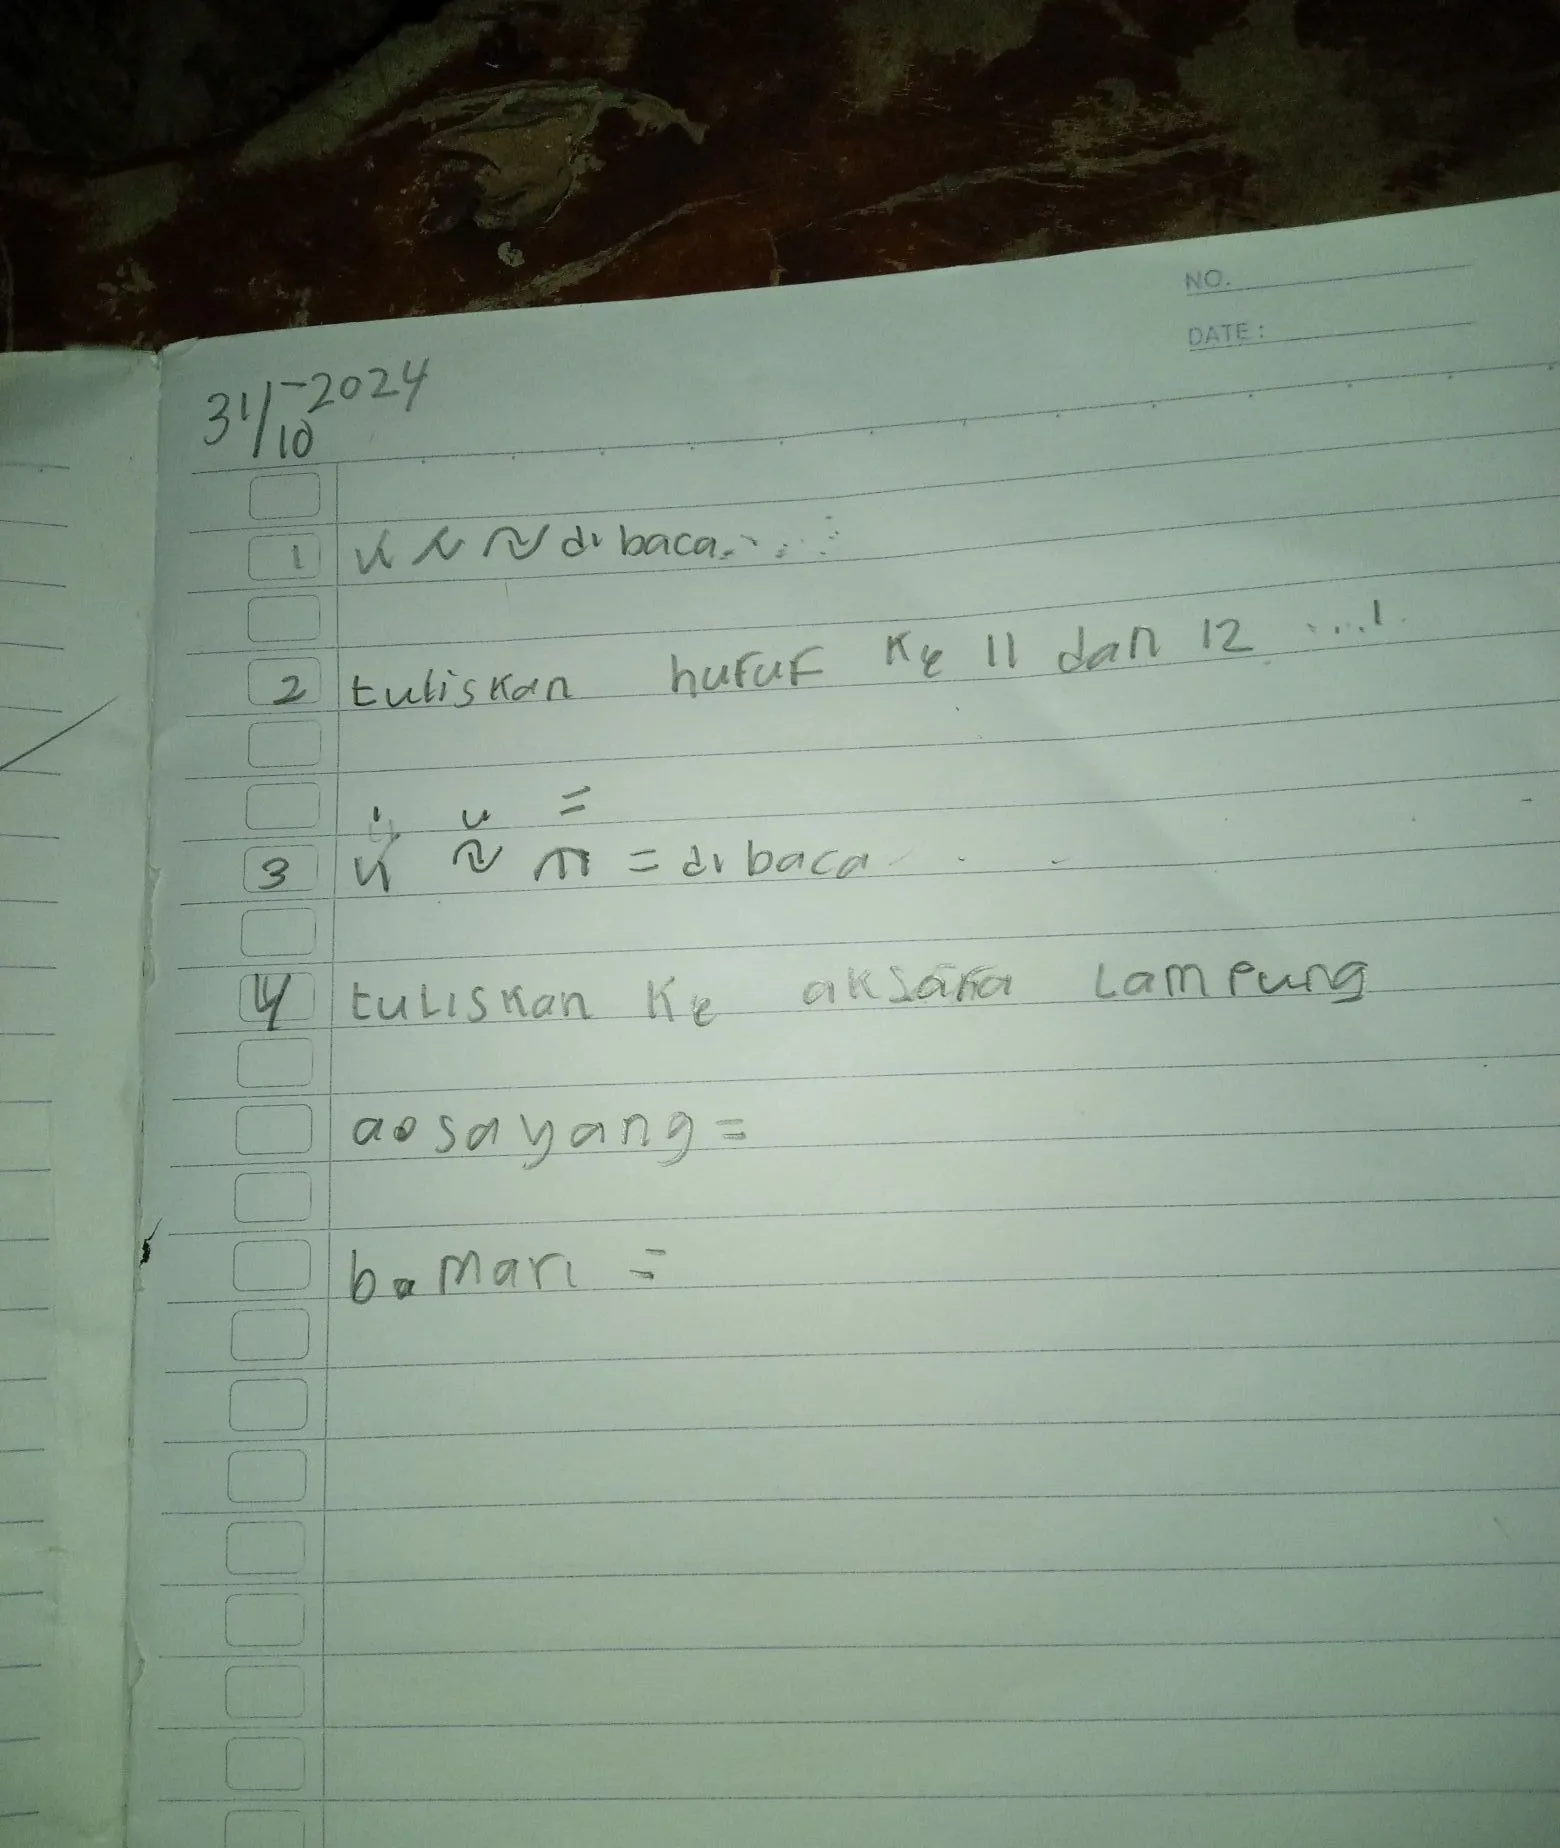 NO.
DATE :
31/10-2024
1 di baca.....
2 tuliskan huruf ke 11 dan 12 ....!
=
3 = di baca
4 tuliskan ke aksara Lampung
a. sayang =
b. Mari =